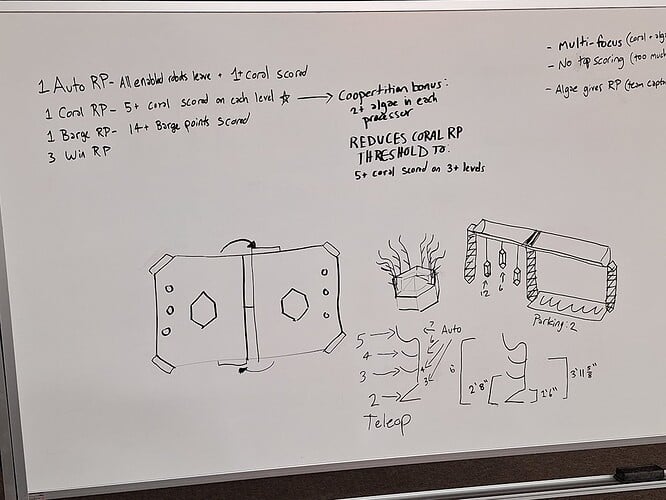 1 Auto RP- All enabled robots leave + 1+ coral scored
1 Coral RP- 5+ coral scored on each level ☆ →
1 Barge RP- 14+ Barge points scored
3 Win RP
Coopertition bonus:
2+ algae in each
processor
REDUCES CORAL RP
THRESHOLD TO:
5+ coral scored on 3+ levels
- Multi-focus (coral + alg
- No top scoring (too much
- Algae gives RP (team capt
12
6
Parking: 2
5
4
3
2
7
6
4
3
Auto
Teleop
6'
2'8"
1'6"
3'11 5/8"